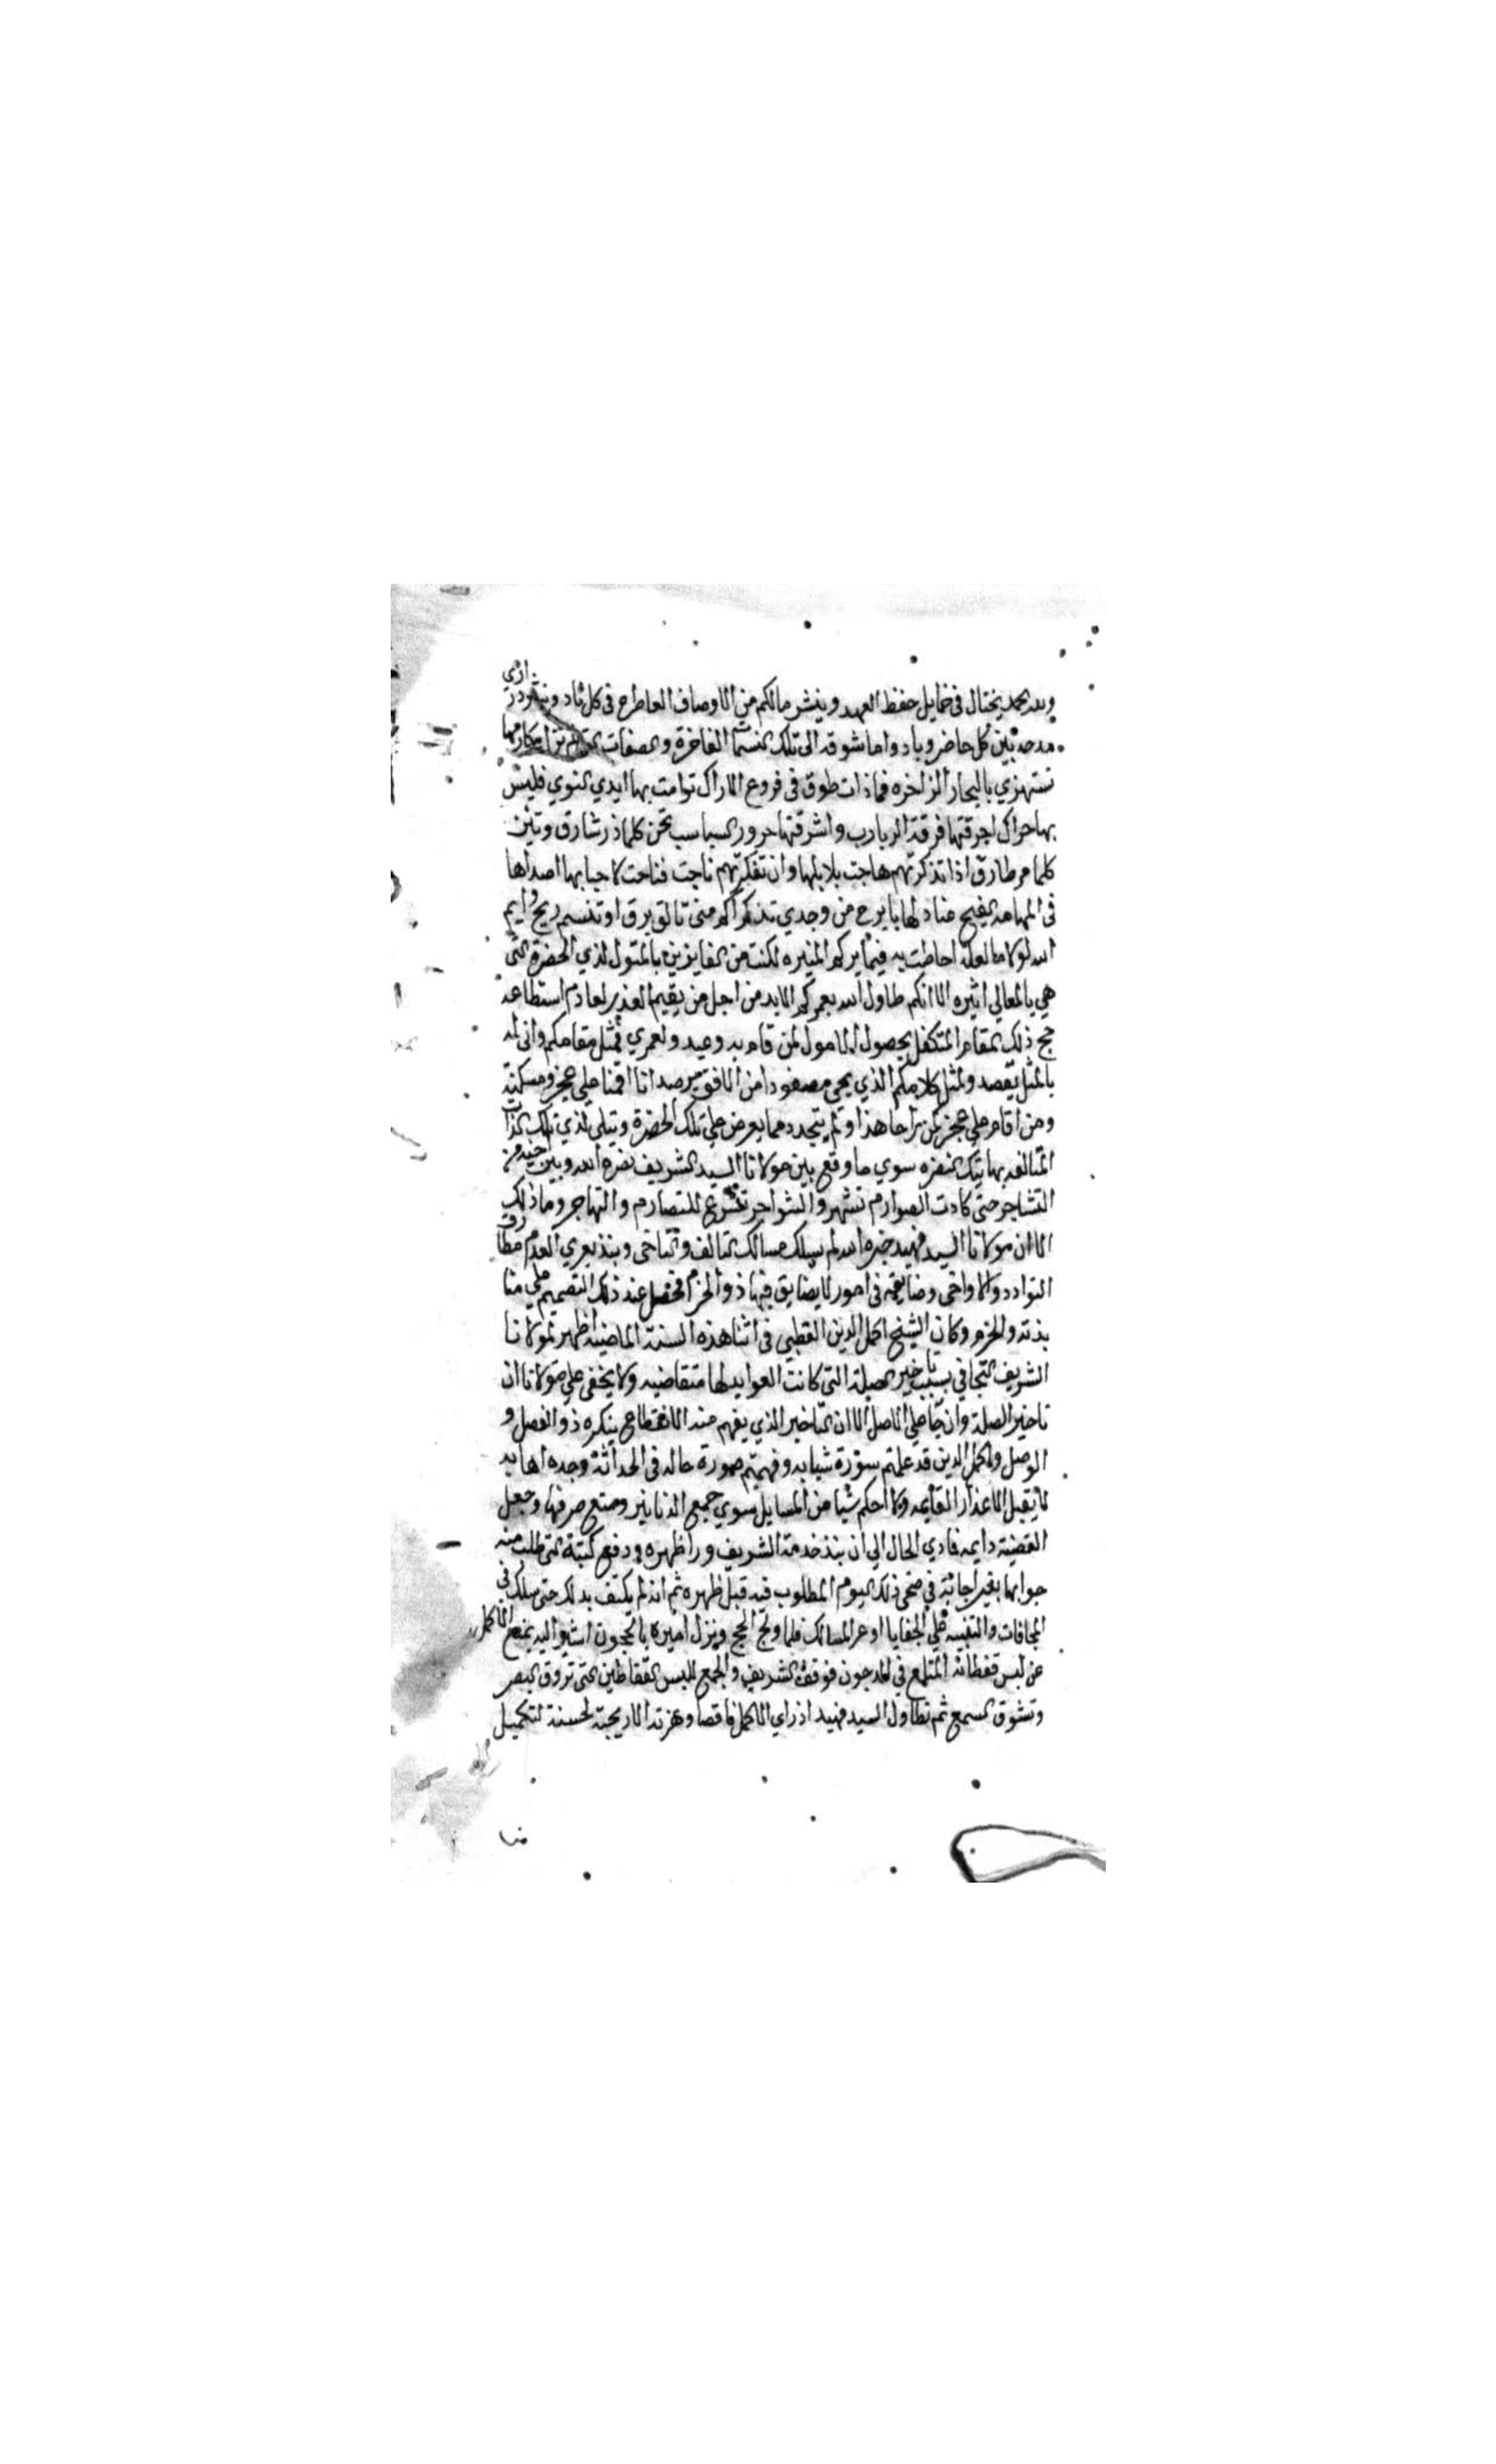 ولله الحمد يختال في خمايل حفظ العهد وينشر مالكم من الاوصاف العاطرة في كل ناد ازى
مدحه بين كل حاضر وباد واما شوقه الى تلك النسمات الفاخرة والصفات التي لم تزل مكارمها
تستهزي بالبحار الزاخره فما ذات طوق في فروع الاراك ترامت بها ايدي النوي فليس
بها حراك احرقتها فرقة الربارب واشرقتها حرور السباسب تحن كلما ذر شارق وتئن
كلما مر طارق اذا تذكرتهم هاجت بلابلها وان تفكرتهم ناحت فناحت لاحبابها اصداها
في المهامه الفيح عنادلها بابرح من وجدي تذكراكم متى تالق برق او تنسم ريح وايم
الله لولا ما لعله احاطت به فيما يركم المنيره لكنت من الفايزين بالمثول لذي الحضرة التي
هي بالمعالي اثيره الا انكم طاول الله بعمركم الابد من اجل من يقيم العذر لعادم استطاعة
حج ذلك المقام المتكفل بحصول المامول لمن قام به وعيد ولعمري فمثل مقامكم وانى له
بالمثل يقصد ولمثل كلامكم الذي يحي مصفودا من الافق يرصد انا اقمنا على عجز ومسكنة
ومن اقام على عجز كمن راحا هذا ولم يتجدد مما يعرض على تلك الحضرة ويتلى لذي تلك الذات
المتالفه بها تيك النضره سوي ما وقع بين مولانا السيد الشريف نصره الله وبين اخيه من
التشاجر حتى كادت الصوارم تشهر والشواجر تشرع للتصارم والتهاجر وما ذلك
الا ان مولانا السيد فهيد خبره الله لم يسلك مسالك التالف والتاخي وينبذ بعري العدم مطارق
التوادد والاواخى وضايقه في امور لا يضايق فيها ذو الحزم فحصل عند ذلك التصميم على منا
بذته والحزم وكان الشيخ اكمل الدين القطبي في اثنا هذه السنة الماضيه اظهر لمولانا
الشريف التجافي بسبب تاخير الصلة التي كانت العوايد لها متقاضيه ولا يخفى على مولانا ان
تاخير الصلة وان جا على الاصل الا ان التاخير الذي يفهم منه الانقطاع ينكره ذو الفضل و
الوصل والاكمل الدين قد علمتم سورة شبابه وفهمتم صورة حاله في الحداثة وجده اهابه
لا يقبل الاعذار القايمه ولا احكم شيا من المسايل سوي جمع الدنانير ومنع صرفها وجعل
القضية دايمه فادي الحال الى ان ينبذ خدمة الشريف ورا ظهره ودفع كتبه التي طلبت منه
جوابها بغير اجابة في ضحى ذلك اليوم المطلوب فيه قبل ظهره ثم انه لم يكتف بذلك حتى سلك في
المجافات والتنبيه على الخفايا اوعر المسالك فلما ولج الحج ونزل اميره بالحجون اشير اليه بمنع الاكمل
عن لبس قفطانه المتلمع في المدرجون فوقف الشريف والجمع للبس القفاطين التي تروق البصر
وتشوق السمع ثم تطاول السيد فهيد اذ راي الاكمل ناقصا وهزته الاريحية لحسنة لتكميل
منا